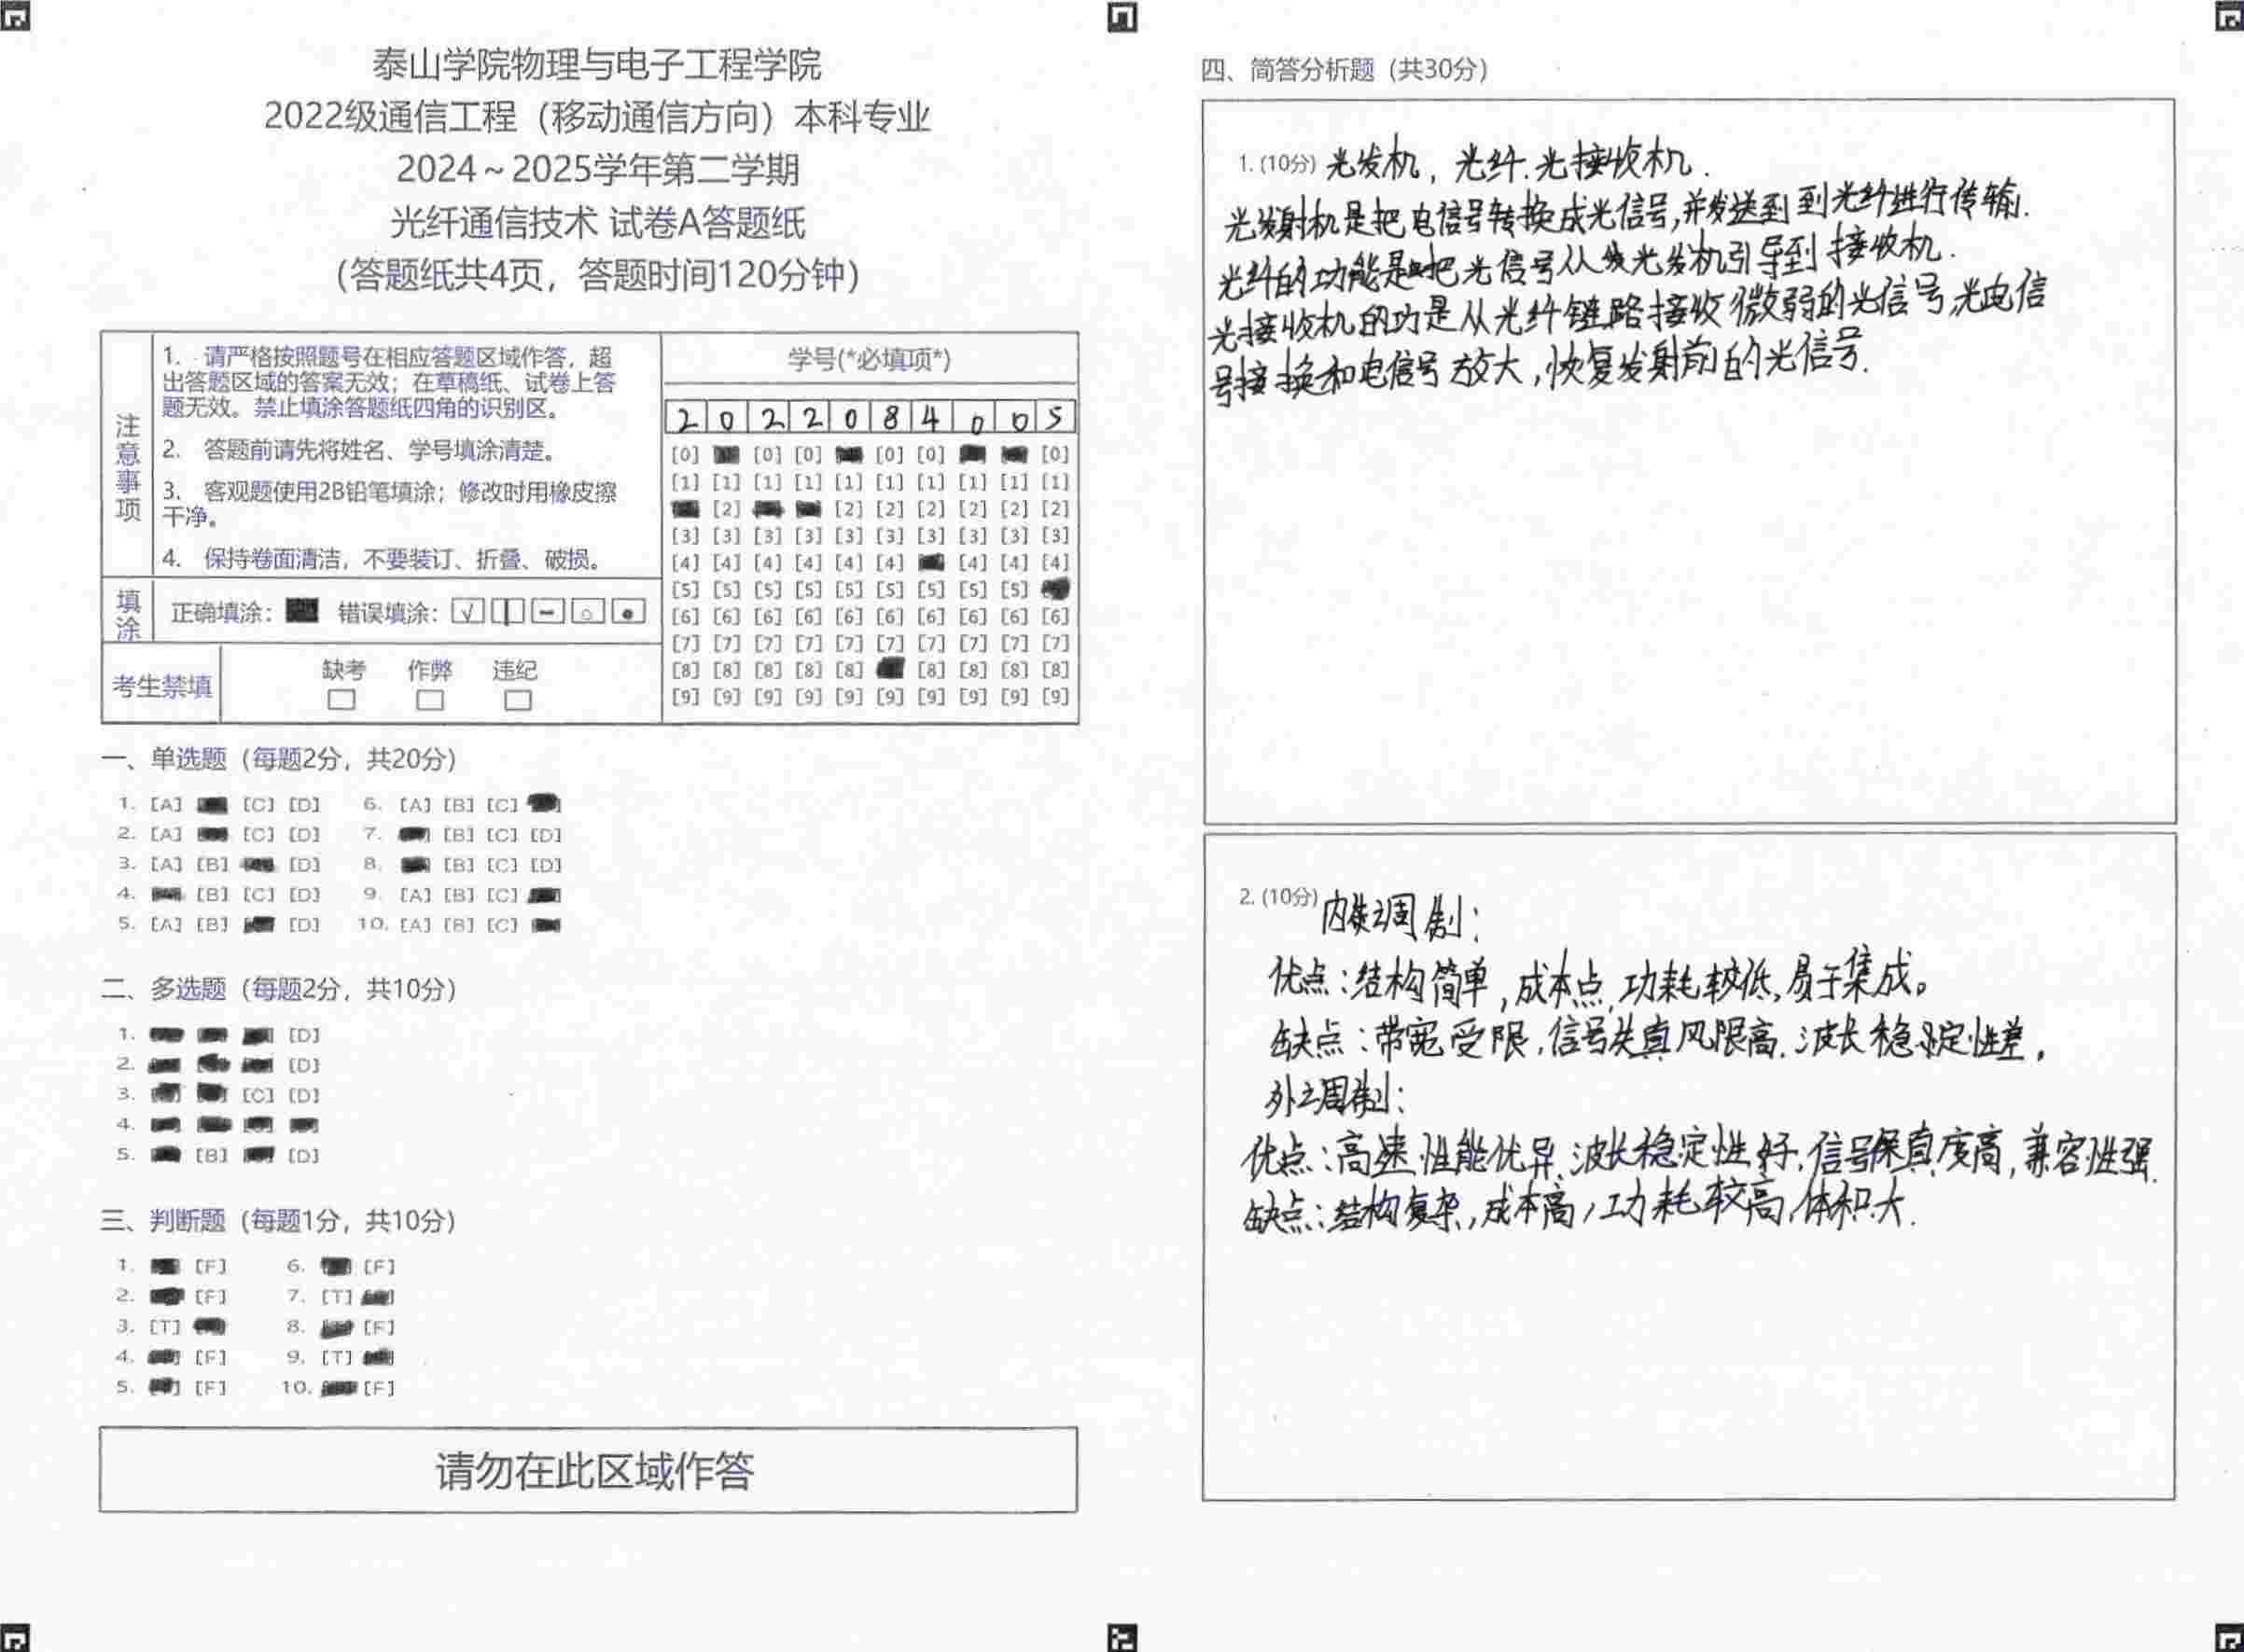 泰山学院物理与电子工程学院
2022级通信工程（移动通信方向）本科专业
2024～2025学年第二学期
光纤通信技术 试卷A答题纸
（答题纸共4页，答题时间120分钟）
注意事项
1. 请严格按照题号在相应答题区域作答，超
出答题区域的答案无效；在草稿纸、试卷上答
题无效。禁止填涂答题纸四角的识别区。
2. 答题前请先将姓名、学号填涂清楚。
3. 客观题使用2B铅笔填涂；修改时用橡皮擦
干净。
4. 保持卷面清洁，不要装订、折叠、破损。
填涂 正确填涂： 错误填涂：
考生禁填 缺考 作弊 违纪
学号(*必填项*)
2 0 2 2 0 8 4 0 0 5
[0] [0] [0] [0] [0] [0]
[1] [1] [1] [1] [1] [1] [1] [1] [1] [1]
[2] [2] [2] [2] [2] [2] [2]
[3] [3] [3] [3] [3] [3] [3] [3] [3] [3]
[4] [4] [4] [4] [4] [4] [4] [4] [4]
[5] [5] [5] [5] [5] [5] [5] [5] [5]
[6] [6] [6] [6] [6] [6] [6] [6] [6] [6]
[7] [7] [7] [7] [7] [7] [7] [7] [7] [7]
[8] [8] [8] [8] [8] [8] [8] [8] [8]
[9] [9] [9] [9] [9] [9] [9] [9] [9] [9]
一、单选题（每题2分，共20分）
1. [A] [C] [D] 6. [A] [B] [C]
2. [A] [C] [D] 7. [B] [C] [D]
3. [A] [B] [D] 8. [B] [C] [D]
4. [B] [C] [D] 9. [A] [B] [C]
5. [A] [B] [D] 10. [A] [B] [C]
二、多选题（每题2分，共10分）
1. [D]
2. [D]
3. [C] [D]
4.
5. [B] [D]
三、判断题（每题1分，共10分）
1. [F] 6. [F]
2. [F] 7. [T]
3. [T] 8. [F]
4. [F] 9. [T]
5. [F] 10. [F]
请勿在此区域作答
四、简答分析题（共30分）
1. (10分) 光发机，光纤.光接收机.
光发射机是把电信号转换成光信号,并发送到到光纤进行传输.
光纤的功能是把光信号从光发机引导到接收机.
光接收机的功是从光纤链路接收微弱的光信号,光电信
号接换和电信号放大,恢复发射前的光信号.
2. (10分) 内调制：
优点：结构简单,成本点,功耗较低,易于集成。
缺点：带宽受限,信号失真风限高.波长稳定性差,
外调制：
优点：高速性能优异.波长稳定性好,信号保真度高,兼容性强.
缺点：结构复杂,成本高,功耗较高,体积大.